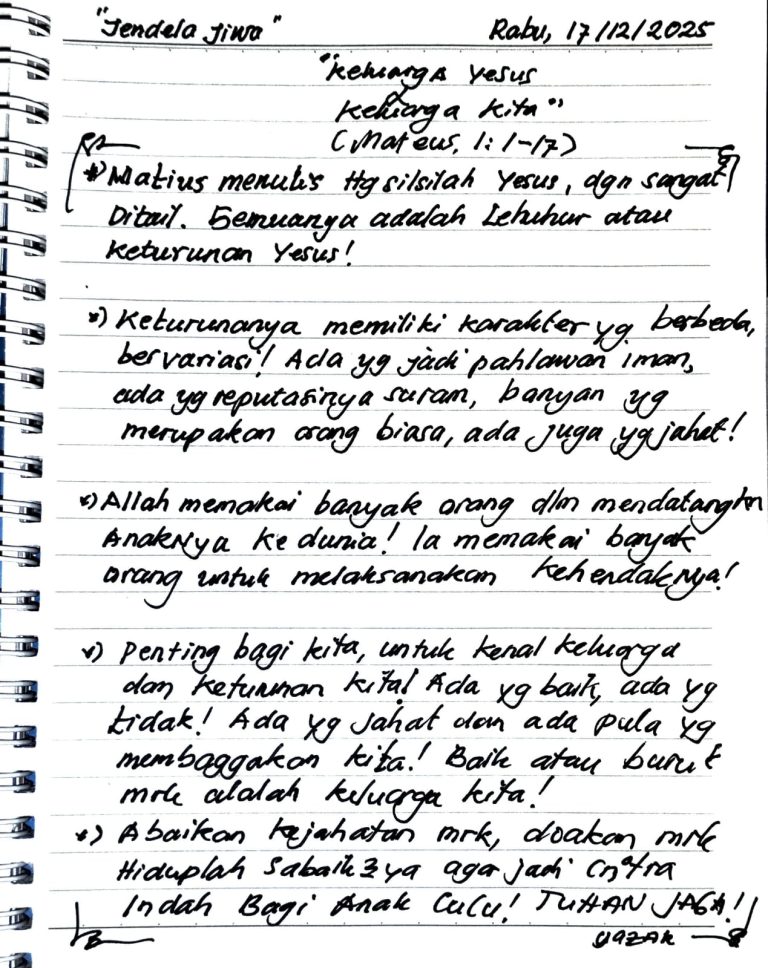 "Jendela Jiwa"
Rabu, 17/12/2025
"Keluarga Yesus
&
Keluarga Kita"
(Mateus, 1: 1-17)
*) Matius menulis ttg silsilah Yesus, dgn sangat
Ditail. Semuanya adalah Leluhur atau
keturunan Yesus!
*) Keturunanya memiliki karakter yg. berbeda,
bervariasi! Ada yg jadi pahlawan iman,
ada yg reputasinya suram, banyan yg
merupakan orang biasa, ada juga yg jahat!
*) Allah memakai banyak orang dlm mendatangkn
AnakNya ke dunia! Ia memakai banyak
orang untuk melaksanakan KehendakNya!
*) Penting bagi kita, untuk kenal keluarga
dan keturunan kita! Ada yg baik, ada yg
tidak! Ada yg jahat dan ada pula yg
membaggakan kita! Baik atau buruk
mrk adalah keluarga kita!
*) Abaikan kejahatan mrk, doakan mrk
Hiduplah sabaik2 ya agar jadi
Indah Bagi Anak Cucu! TUHAN JAGA!